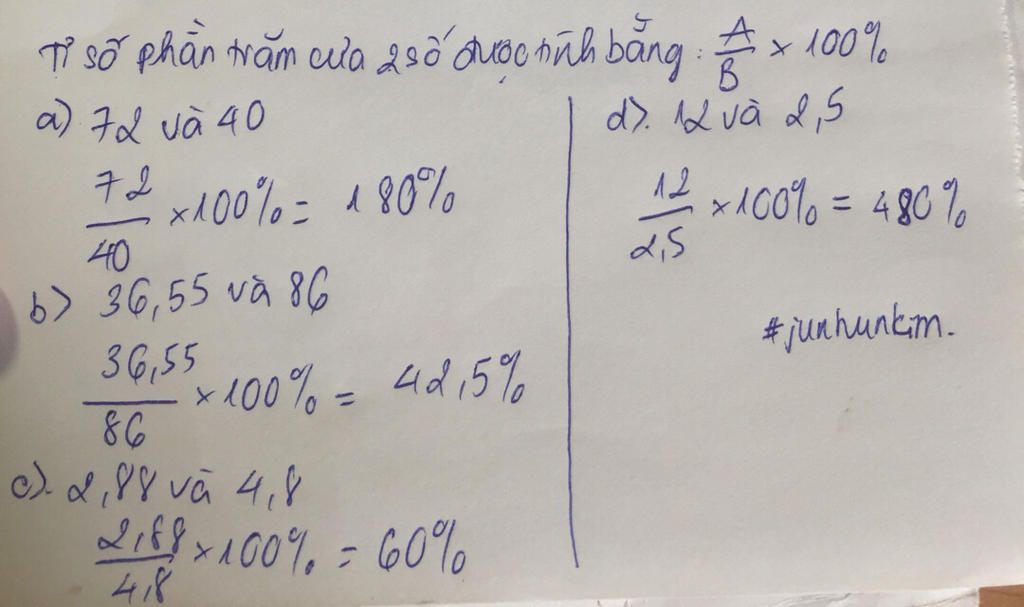 Tỉ số phần trăm của 2 số được tính bằng: A/B × 100%
a) 72 và 40
72/40 × 100% = 180%
b) 36,55 và 86
36,55/86 × 100% = 42,5%
c). 2,88 và 4,8
2,88/4,8 × 100% = 60%
d). 12 và 2,5
12/2,5 × 100% = 480%
#junhunkim.